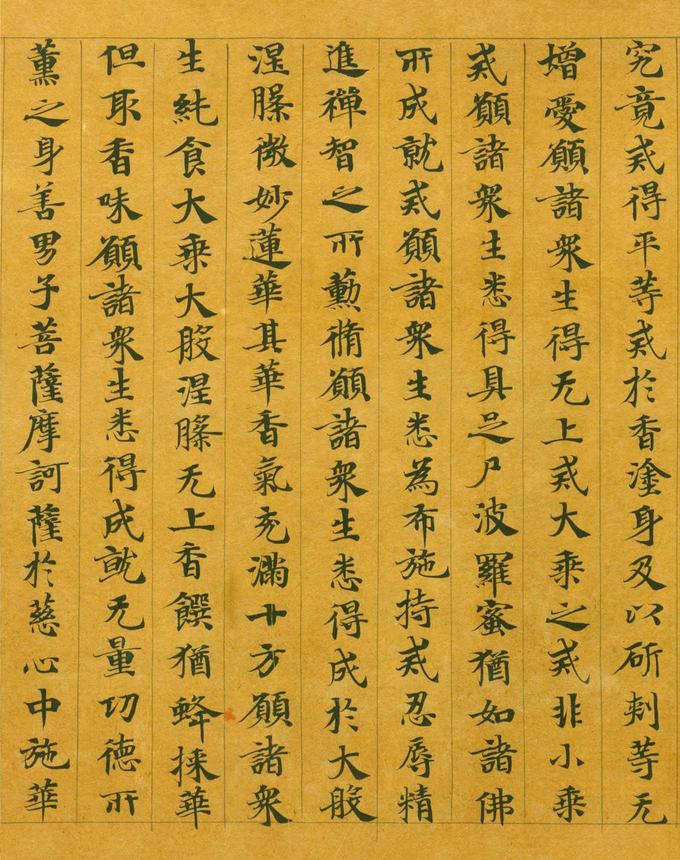 究竟戒得平等戒於香塗身及以斫刺等无
憎愛願諸衆生得无上戒大乘之戒非小乘
戒願諸衆生悉得具足尸波羅蜜猶如諸佛
所成就戒願諸衆生悉為布施持戒忍辱精
進禪智之所勳脩願諸衆生悉得成於大般
涅槃微妙蓮華其華香氣充滿十方願諸衆
生純食大乘大般涅槃无上香饌猶蜂採華
但取香味願諸衆生悉得成就无量功德所
薰之身善男子菩薩摩訶薩於慈心中施華